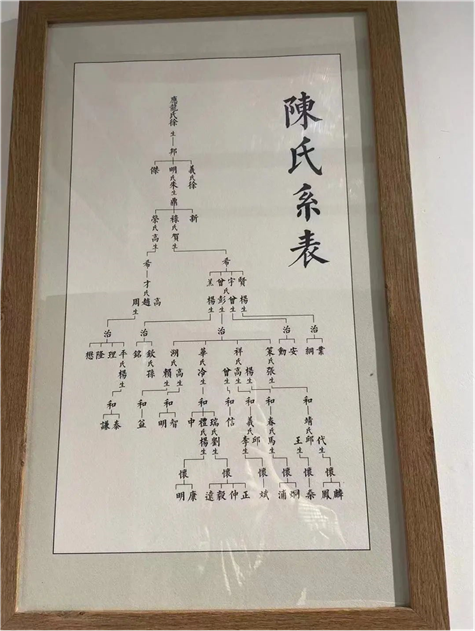 陳氏系表
應龍氏徐生
邦
義氏徐
明氏朱生
傑
鼎
新
祿氏賀生
榮氏高生
希
希
賢 楊生
宇 曾生
曾氏彭生
楊生
才氏趙 高
周生
治
治
治
治
治
業
綱
安
勳
策氏張生
祥氏高生 楊
曾生
華氏冷生
湖氏賴生 高
欽氏孫
銘
平氏楊生
理
隆
懋
和
和
和
和
和
和
和
和
靖氏邱
王生
代生
春氏馬生
義氏李生 邱
信
瑞氏劉生
禮氏楊生
中
智
明
泰
謙
懷
懷
懷
懷
懷
懷
麟
鳳
桑
炯
浦
斌
正
仲
毅
遠
康
明